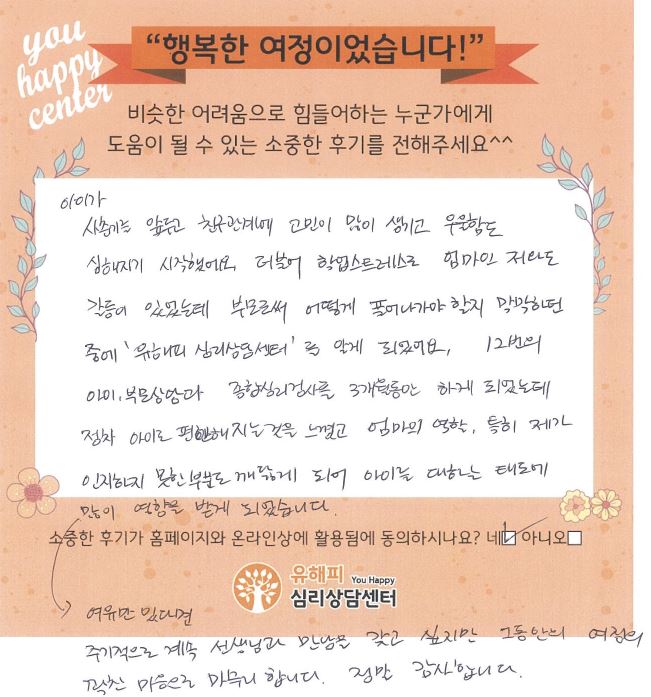 you
happy
center
“행복한 여정이었습니다!”
비슷한 어려움으로 힘들어하는 누군가에게
도움이 될 수 있는 소중한 후기를 전해주세요^^
아이가
사춘기를 앞두고 친구관계에 고민이 많이 생기고 우울함도
심해지기 시작했어요. 더불어 학업스트레스로 엄마인 저와도
갈등이 있었는데 부모로써 어떻게 풀어나가야 할지 막막하던
중에 '유해피 심리상담센터'를 알게 되었어요. 12번의
아이, 부모상담과 종합심리검사를 3개월동안 하게 되었는데
점차 아이도 편안해지는것을 느꼈고 엄마의 역할, 특히 제가
인지하지 못한 부분도 깨닫게 되어 아이를 대하는 태도에
많이 영향을 받게 되었습니다.
소중한 후기가 홈페이지와 온라인상에 활용됨에 동의하시나요? 네 아니오
유해피 You Happy
심리상담센터
여유만 있다면
주기적으로 계속 선생님과 만남을 갖고 싶지만 그동안의 여정의
벅찬 마음으로 마무리 합니다. 정말 감사합니다.